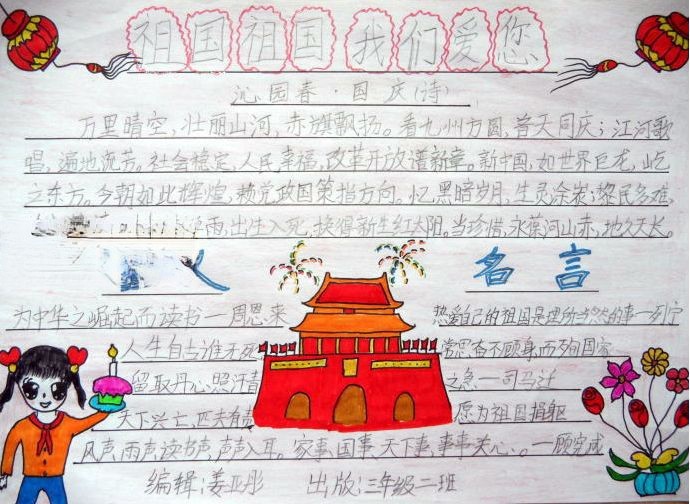 祖国祖国我们爱您
沁园春·国庆(诗)
万里晴空,壮丽山河,赤旗飘扬。看九州方圆,普天同庆;江河歌
唱,遍地流芳。社会稳定,人民幸福,改革开放谱新章。新中国,如世界巨龙,屹
立东方。今朝如此辉煌,赖党政国策指方向。忆,黑暗岁月,生灵涂炭;黎民多难,
雨,出生入死,换得新生红太阳。当珍惜,永葆河山赤,地久天长。
人 名言
为中华之崛起而读书—周恩来
热爱自己的祖国是理所当然的事—列宁
人生自古谁无死
常思奋不顾身而殉国家
留取丹心照汗青
之急—司马迁
天下兴亡,匹夫有责
愿为祖国捐躯
风声,雨声,读书声,声声入耳。家事,国事,天下事,事事关心、。—顾宪成
编辑:姜亚彤 出版:三年级二班